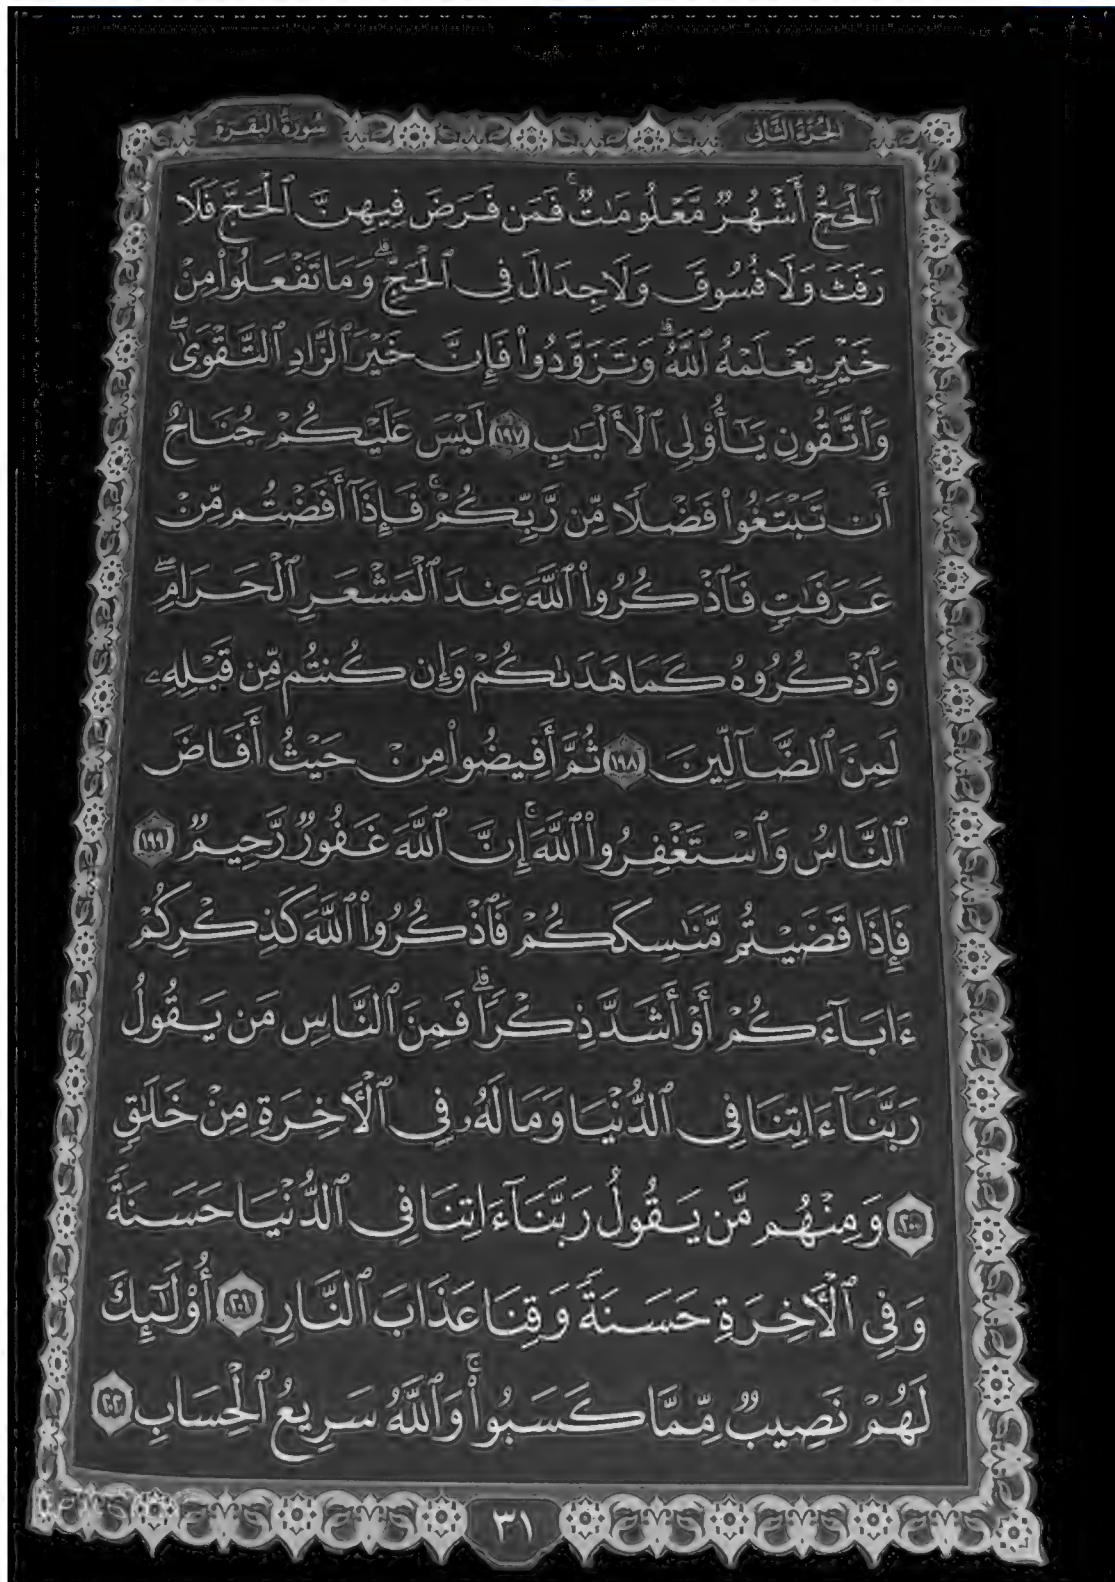 الجزء الثاني
سورة البقرة
ٱلْحَجُّ أَشْهُرٌ مَّعْلُومَٰتٌ ۚ فَمَن فَرَضَ فِيهِنَّ ٱلْحَجَّ فَلَا
رَفَثَ وَلَا فُسُوقَ وَلَا جِدَالَ فِى ٱلْحَجِّ ۗ وَمَا تَفْعَلُوا۟ مِنْ
خَيْرٍ يَعْلَمْهُ ٱللَّهُ ۗ وَتَزَوَّدُوا۟ فَإِنَّ خَيْرَ ٱلزَّادِ ٱلتَّقْوَىٰ ۖ
وَٱتَّقُونِ يَٰٓأُو۟لِى ٱلْأَلْبَٰبِ ١٩٧ لَيْسَ عَلَيْكُمْ جُنَاحٌ
أَن تَبْتَغُوا۟ فَضْلًا مِّن رَّبِّكُمْ ۚ فَإِذَآ أَفَضْتُم مِّنْ
عَرَفَٰتٍ فَٱذْكُرُوا۟ ٱللَّهَ عِندَ ٱلْمَشْعَرِ ٱلْحَرَامِ ۖ
وَٱذْكُرُوهُ كَمَا هَدَىٰكُمْ وَإِن كُنتُم مِّن قَبْلِهِۦ
لَمِنَ ٱلضَّآلِّينَ ١٩٨ ثُمَّ أَفِيضُوا۟ مِنْ حَيْثُ أَفَاضَ
ٱلنَّاسُ وَٱسْتَغْفِرُوا۟ ٱللَّهَ ۚ إِنَّ ٱللَّهَ غَفُورٌ رَّحِيمٌ ١٩٩
فَإِذَا قَضَيْتُم مَّنَٰسِكَكُمْ فَٱذْكُرُوا۟ ٱللَّهَ كَذِكْرِكُمْ
ءَابَآءَكُمْ أَوْ أَشَدَّ ذِكْرًا ۗ فَمِنَ ٱلنَّاسِ مَن يَقُولُ
رَبَّنَآ ءَاتِنَا فِى ٱلدُّنْيَا وَمَا لَهُۥ فِى ٱلْءَاخِرَةِ مِنْ خَلَٰقٍ
٢٠٠ وَمِنْهُم مَّن يَقُولُ رَبَّنَآ ءَاتِنَا فِى ٱلدُّنْيَا حَسَنَةً
وَفِى ٱلْءَاخِرَةِ حَسَنَةً وَقِنَا عَذَابَ ٱلنَّارِ ٢٠١ أُو۟لَٰٓئِكَ
لَهُمْ نَصِيبٌ مِّمَّا كَسَبُوا۟ ۚ وَٱللَّهُ سَرِيعُ ٱلْحِسَابِ ٢٠٢
٣١